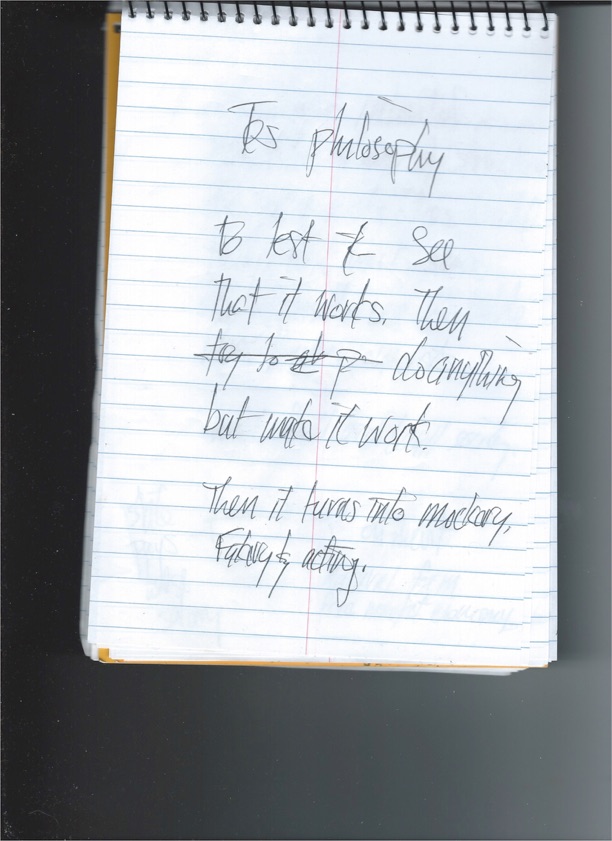 philosophy
to test & see
that it works. Then
try to do anything
but make it work.
Then it turns into mockery,
& acting.